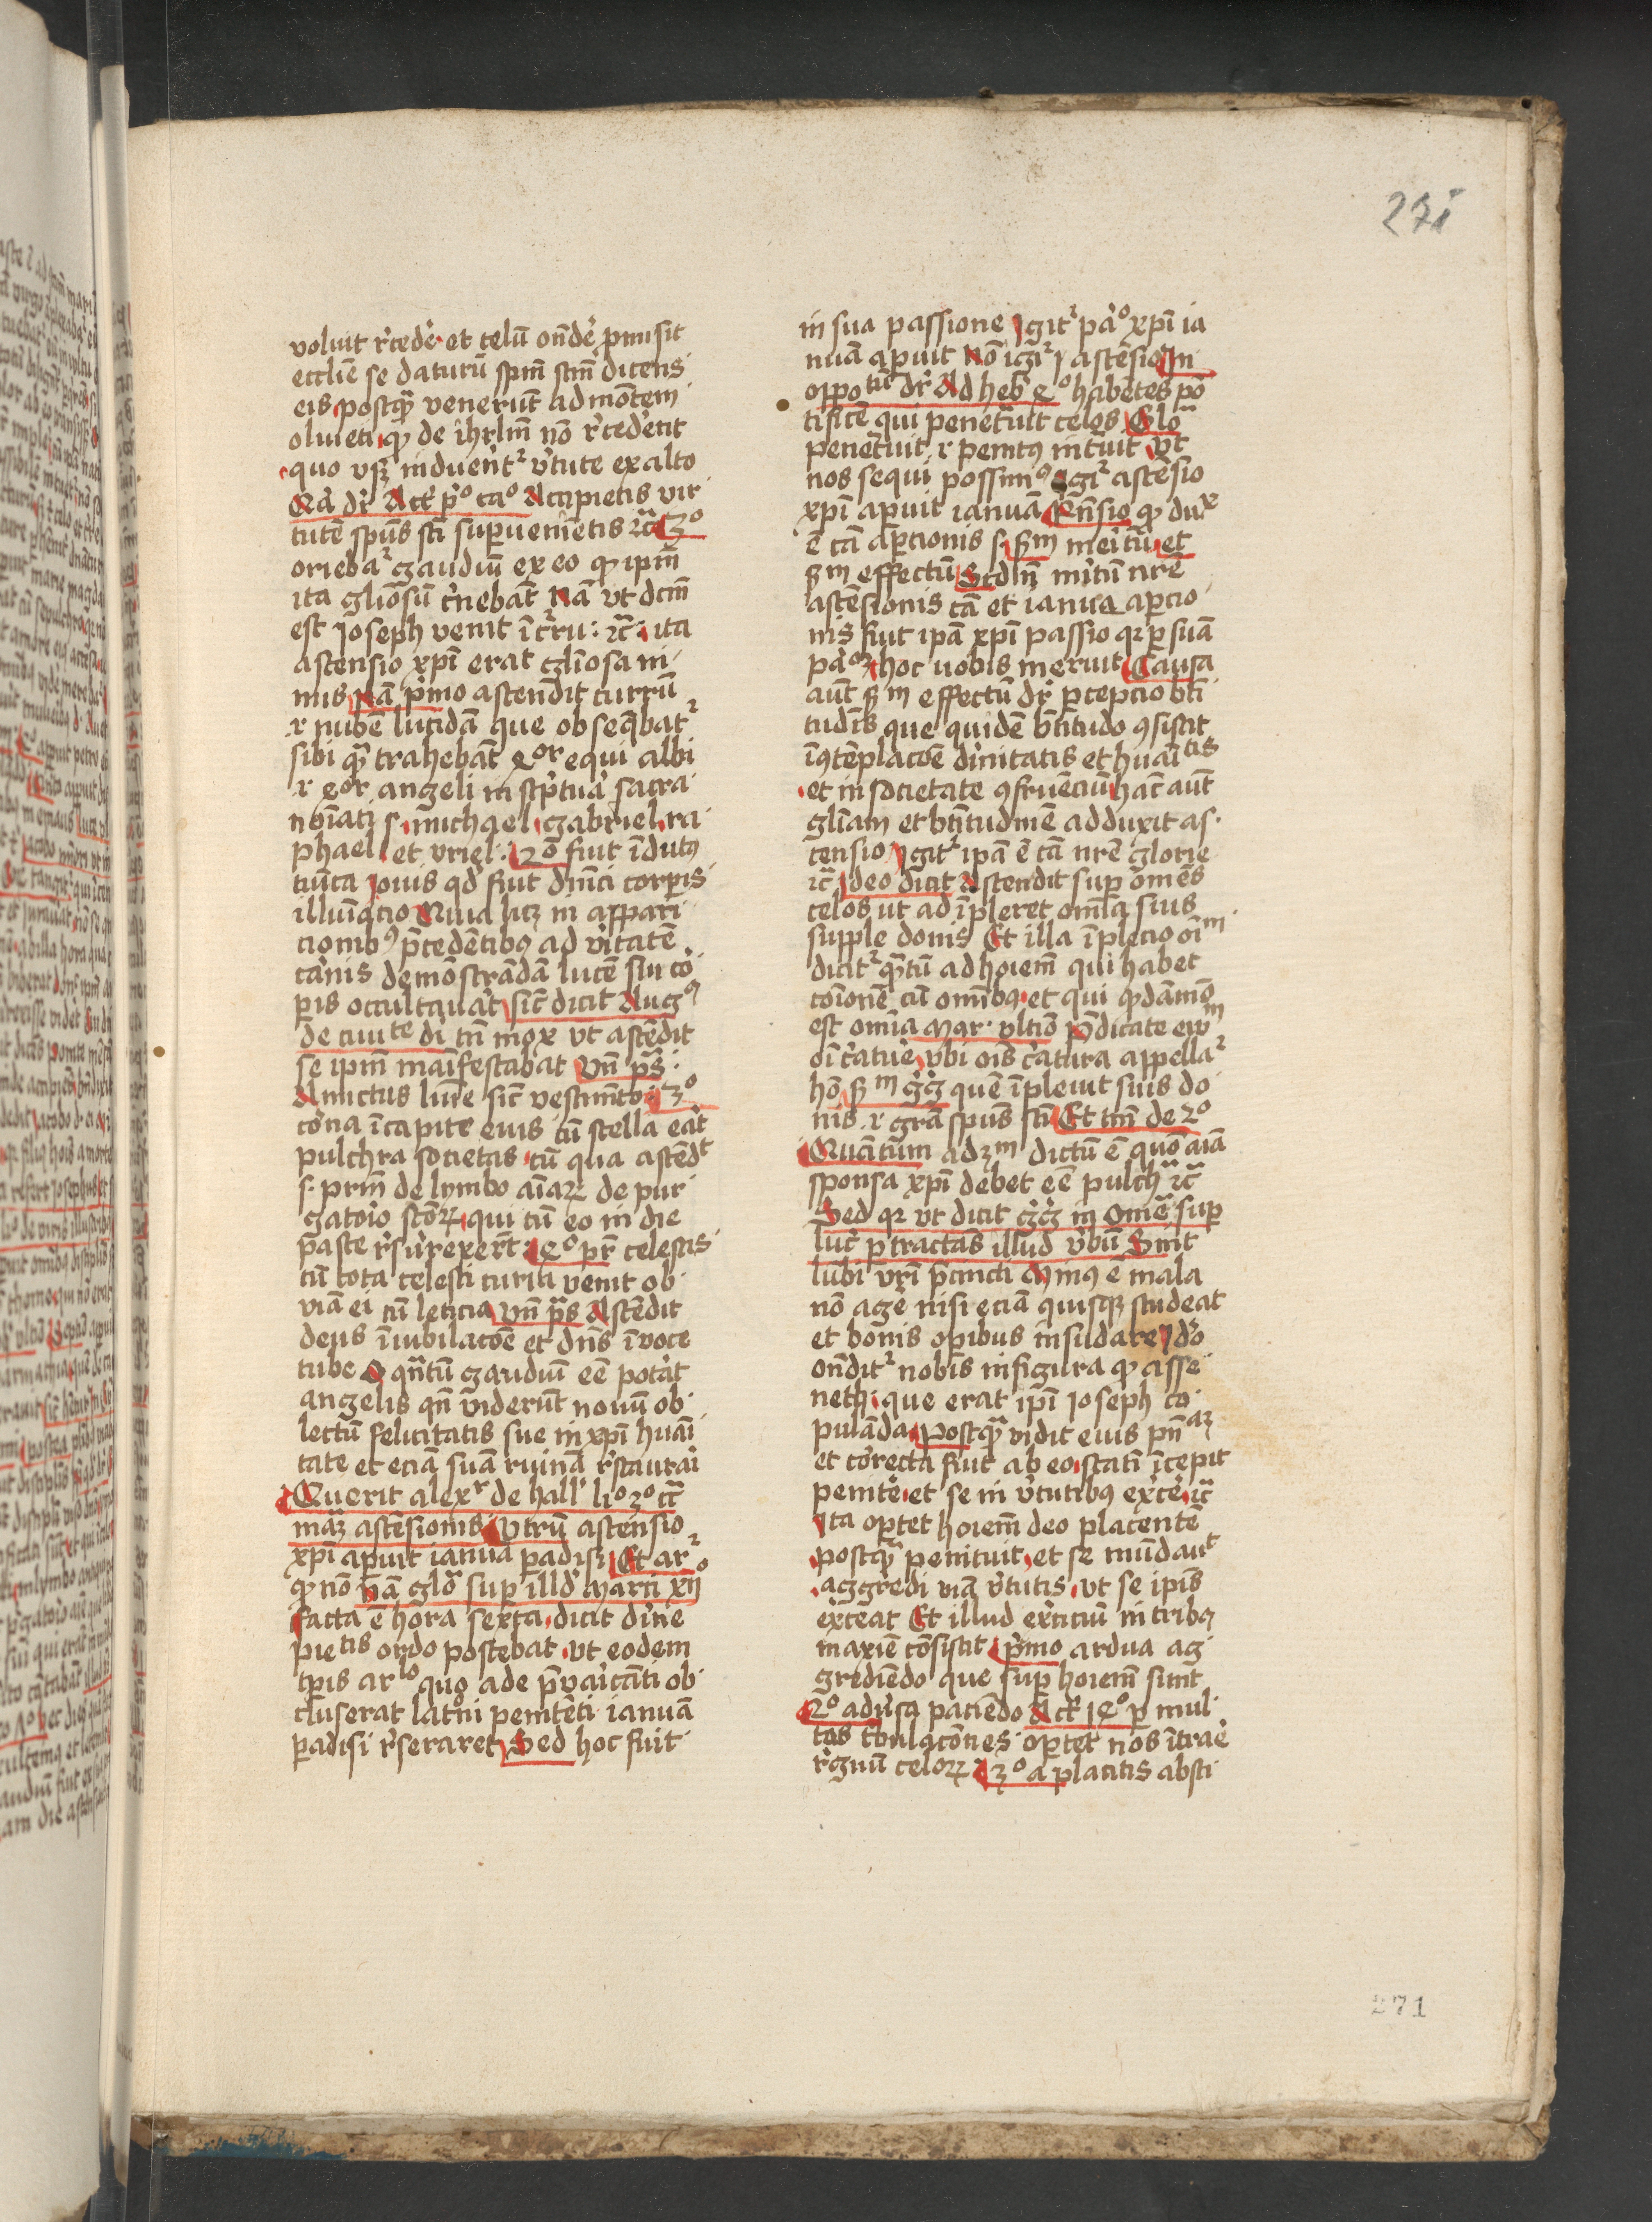 271
voluit r̄cede᷑ · et celū on̄de᷑ ꝓmisit
eccłie se daturū spm̄ scm̄ dicens
eis postqᷓ venerūt ad mōtem
oliueti ꝙ de ihrłm nō r̄cederēt
quo vsqꝫ induēnt᷑ v̓tute ex alto
dr̄ Act p̓º caº Accipietis vir
tutē spūs scī supervenīetis ⁊cᷓ 3º
orieba᷑ gaudiū ex eo ꝙ ipm̄
ita głiosū c̓nebāt Nā vt dcm̄
est Joseph venit ī c᷑ru : ⁊cᷓ · ita
ascensio xp̄i erat głiosa ni
mis Nā p̓mo ascendit currū
⁊ nubē lucidā que obsequebat᷑
sibi qᷓ trahebāt 4or equi albi
⁊ 4or angeli in sc̓ptua̓ sacra
noīati s · michael · gabriel · ra
phael · et vriel · 2º fuit īdutꝰ
tūica Jouis qd̓ fuit dnīci corp̄is
illuīacio Quia licꝫ in appari
cionibꝰ p̄cedētibꝰ ad v̓itatē
ca̓nis demōstrādā lucē sui co̓
p̄is occultauit sic̄ dicit Augꝰ
de ciuite di tn̄ mox vt ascēdit
se ipm̄ maīfestabat Vn̄ pᷤ ·
Amictus lumīe sic̄ vestimēto · 3º
co̓na ī capite eius cū stella eāt
pulchra societas · cū qua ascēdt
s · pr̄m de lymbo aīaꝝ de pur
gato̓io sc̄oꝝ · qui cū eo in die
pasce r̄surexer̄t · 4º pr̄ celestis
cū tota celesti curia venit ob
viā ei cū leticia Vn̄ pᷤ Ascēdit
deus ī iubilacōe et dn̄s ī voce
tube O qn̄tū gaudiū eē potāt
angelis qn̄ viderūt nouū ob
lectū felicitatis sue in xp̄i huāi
tate et eciā suā ruinā r̄staurāi
Querit alexr de hall̓ liº 3º
ascēsionis Vtrū ascensio
xp̄i apuit ianuā ꝑadisi Et ar᷑
ꝙ nō Nā glo᷑ sup illd̓ Marci xv
facta ē hora sexta · dicit di̓ne
pietis ordo poscebat · vt eodem
tp̄is arlo quo ade p̄vaīcāti ob
cluserat lat̓ni penitēti ianuā
ꝑadisi r̄seraret Sed hoc fuit
in sua passione Igit᷑ pa̓º xp̄i ia
nuā apuit Nō igi᷑ ascēsio In
oppotū dr̄ Ad heb̓ 4º habētes pō
tificē qui penet̓uit celos Glo᷑
penet̓uit · ⁊ penitꝰ intuit Vt
nos sequi possimꝰ Igi᷑ ascēsio
xp̄i apuit ianuā Rn̄sio ꝙ dux
ē cā apcionis s · Scdm mēitū et
scdm effectū Scdm mītū nr̄e
ascēsionis cā et ianua apcio
nis fuit ipā xp̄i passio qꝛ ꝑ suā
hoc nobis meruit Causa
aut̄ scdm effectū dr̄ pcepcio bt̄i
tudīs que quidē bt̄itudo ꝯsistit
ī ꝯtēplacōe diīnitatis et huāitis
· et in societate ꝯfruēciū hāc aut̄
głiam et bt̄itudinē adduxit as
censio Igit᷑ ipā ē cā nr̄e glorie
⁊cᷓ Ideo dicit Ascendit sup om̄es
celos ut adīpleret om̄ia suis
supple donis Et illa īplecio oīm
dicit᷑ qᷓtū ad hoiem̄ qui habet
coīonē cū om̄ibꝰ · et qui qᵈāmō
est om̄ia Mar · vltiō p̄dicate ew
oī c̓ature᷑ vbi oīs c̓atura appella᷑
hō scdm gg̓ quē īpleuit suis do
nis ⁊ gr̄a spūs scī Et tm̄ de 2º
Quātum ad 3m dictū ē quō aīa
sponsa xp̄i debet eē pulchᷓ ⁊cᷓ
Sed qꝛ vt dicit gg̓ in Omeᷓ sup
luc̓ ꝑtractās illud v̓bū Sint
lūbi vr̄i p̄cincti Minꝰ ē mala
nō age᷑ nisi eciā quisqꝫ studeat
et bonis opibus insudare Ido
on̄dit᷑ nobis in figura ꝙ asse
neth · que erat ip̄i Joseph co
pulāda Postqᷓ vidit eius
et co̓recta fuit ab eo · statī īcepit
penite᷑ · et se in v̓tutibꝰ exc̓e᷑ ⁊cᷓ
Ita optet hoiem̄ deo placentē
postqᷓ penituit · et se mūdaut
· aggredi viā v̓tutis · vt se ipīs
ex̓ceat Et illud exc̓iciū in tribꝰ
maxīe cōsistit p̓mo ardua ag
grediēdo que sup hoiem̄ sunt
2º adu̓sa paciēdo Act̓ 14º ꝑ mul
tas t̓bulacōnes optet nos īt̓re᷑
r̄gnū celoꝝ 3º a placitis absti
271